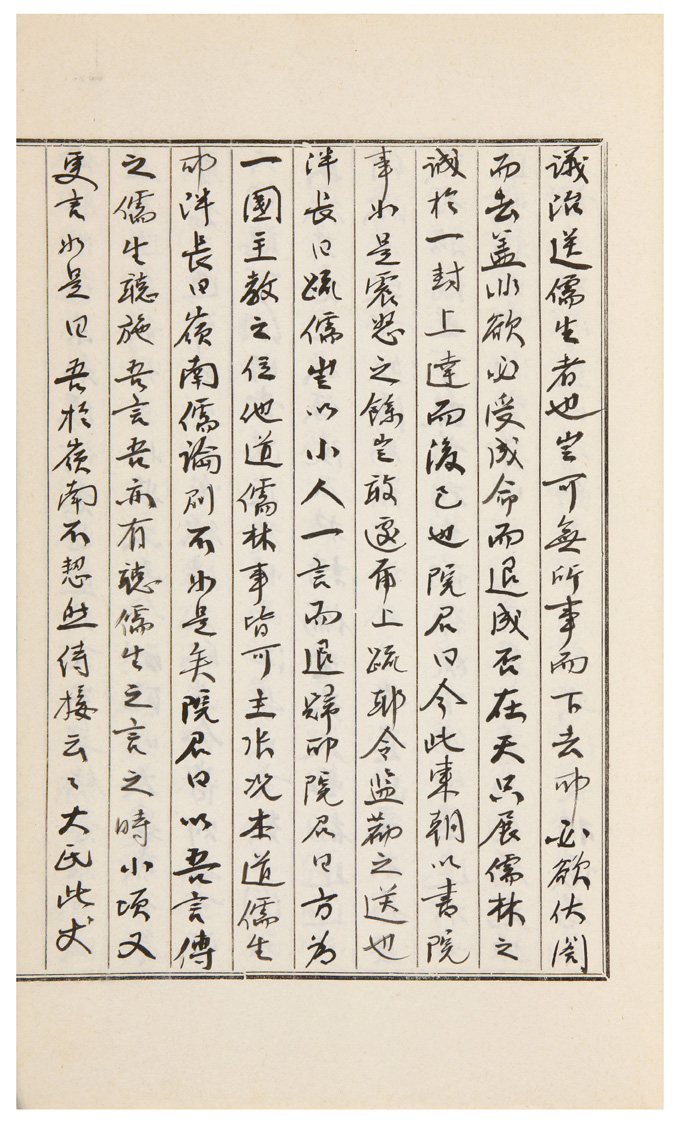 議治送儒生者也豈可無所事而下去耶必欲伏閤
而去盖以欲必受成命而退成否在天只展儒林之
誠於一封上達而後已也院君曰今此東朝以書院
事如是震怒之餘豈敢遽爾上疏耶令監勸之送也
泮長曰疏儒豈以小人一言而退歸耶院君曰方為
一國主敎之任他道儒林事皆可主張况本道儒生
耶泮長曰嶺南儒論則不如是矣院君曰以吾言傳
之儒生聽施吾言吾亦有聽儒生之言之時小頃又
更言如是曰吾於嶺南不恝然待接云〻大民此丈